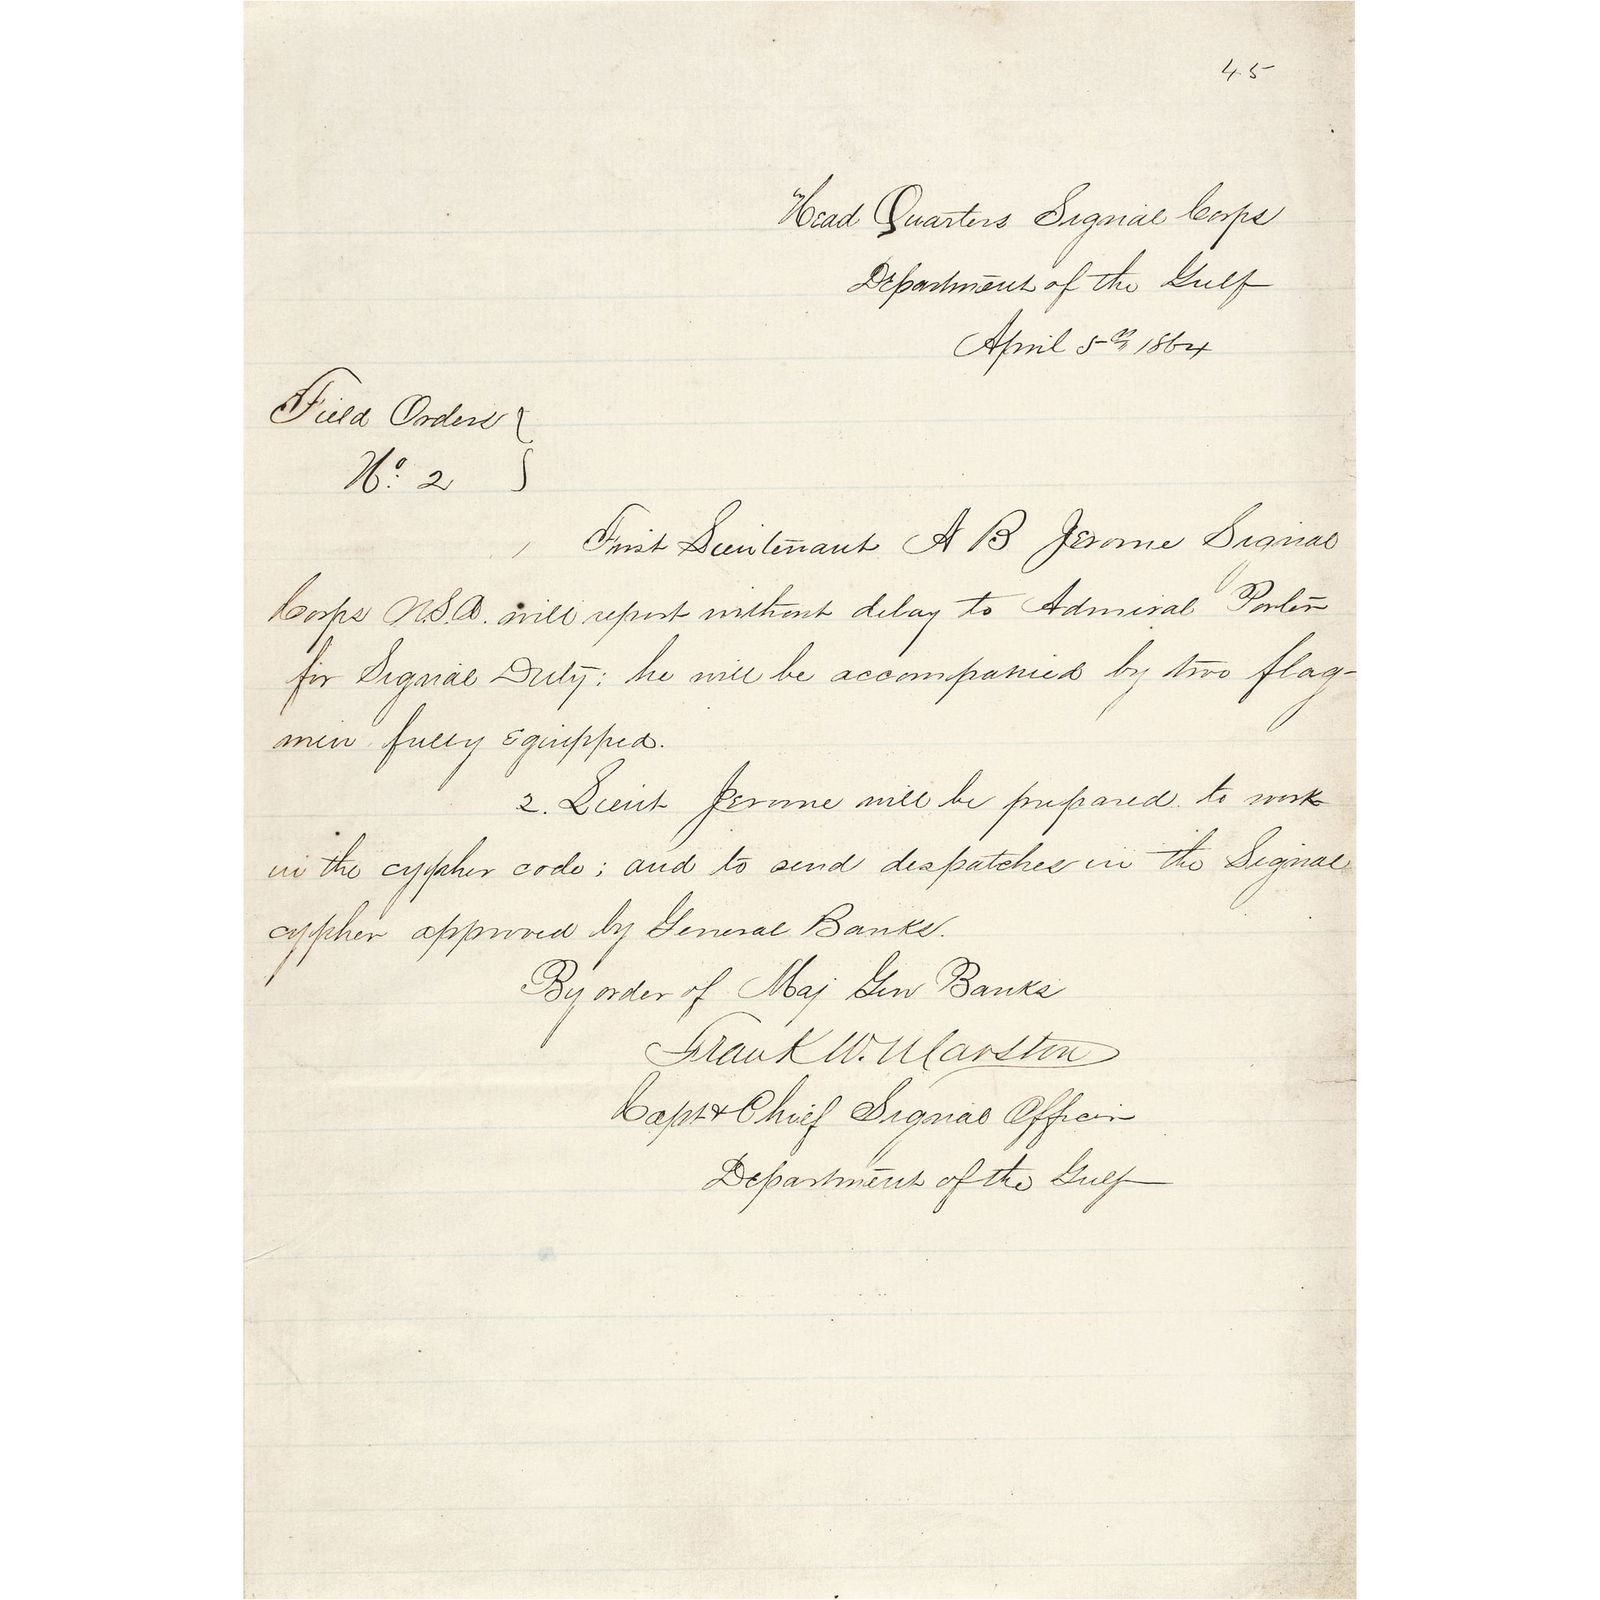 45
Head Quarters Signal Corps
Department of the Gulf
April 5th 1864
Field Orders
No. 2
First Lieutenant A B Jerome Signal
Corps U.S.A. will report without delay to Admiral Porter
for Signal Duty; he will be accompanied by two flag-
men fully equipped.
2. Lieut Jerome will be prepared to work
in the cypher code; and to send despatches in the Signal
cypher approved by General Banks.
By order of Maj Gen Banks
Frank W. Marston
Capt & Chief Signal Officer
Department of the Gulf